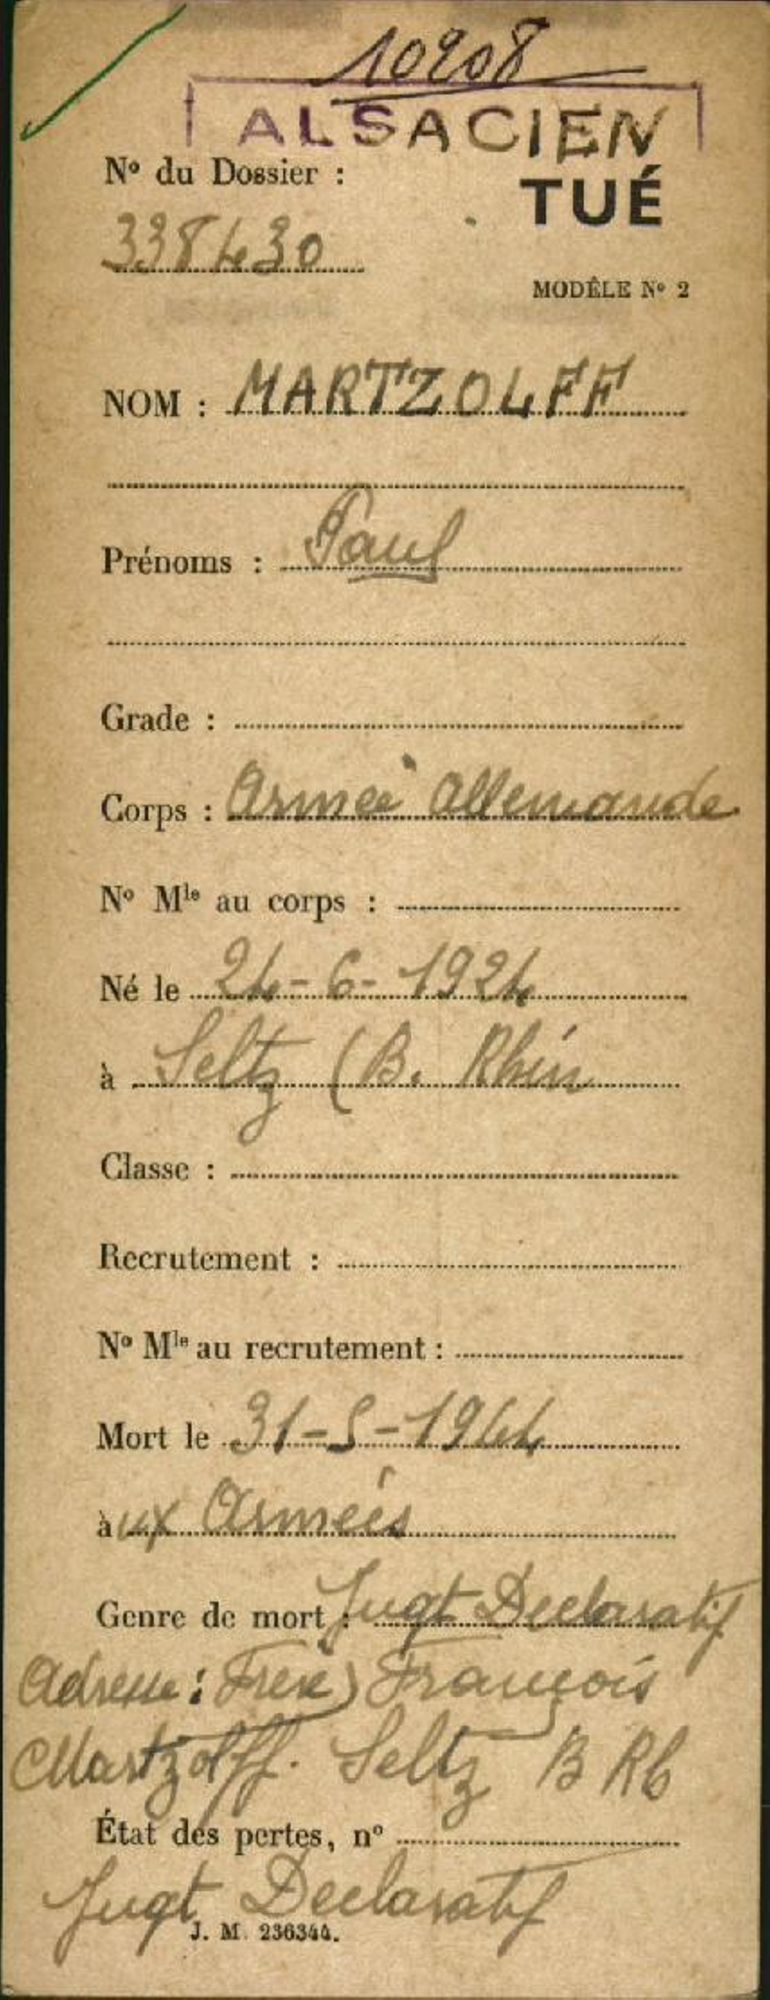 10908
ALSACIEN
N° du Dossier :
TUÉ
338430
MODÈLE N° 2
NOM : MARTZOLFF
Prénoms : Paul
Grade :
Corps : Armée Allemande
N° Mle au corps :
Né le 24-6-1924
à Seltz (B. Rhin
Classe :
Recrutement :
N° Mle au recrutement :
Mort le 31-5-1944
aux Armées
Genre de mort : Jugt Declaratif
Adresse : Frère) François
Martzolff. Seltz B Rh
État des pertes, n°
Jugt Declaratif
J. M. 236344.